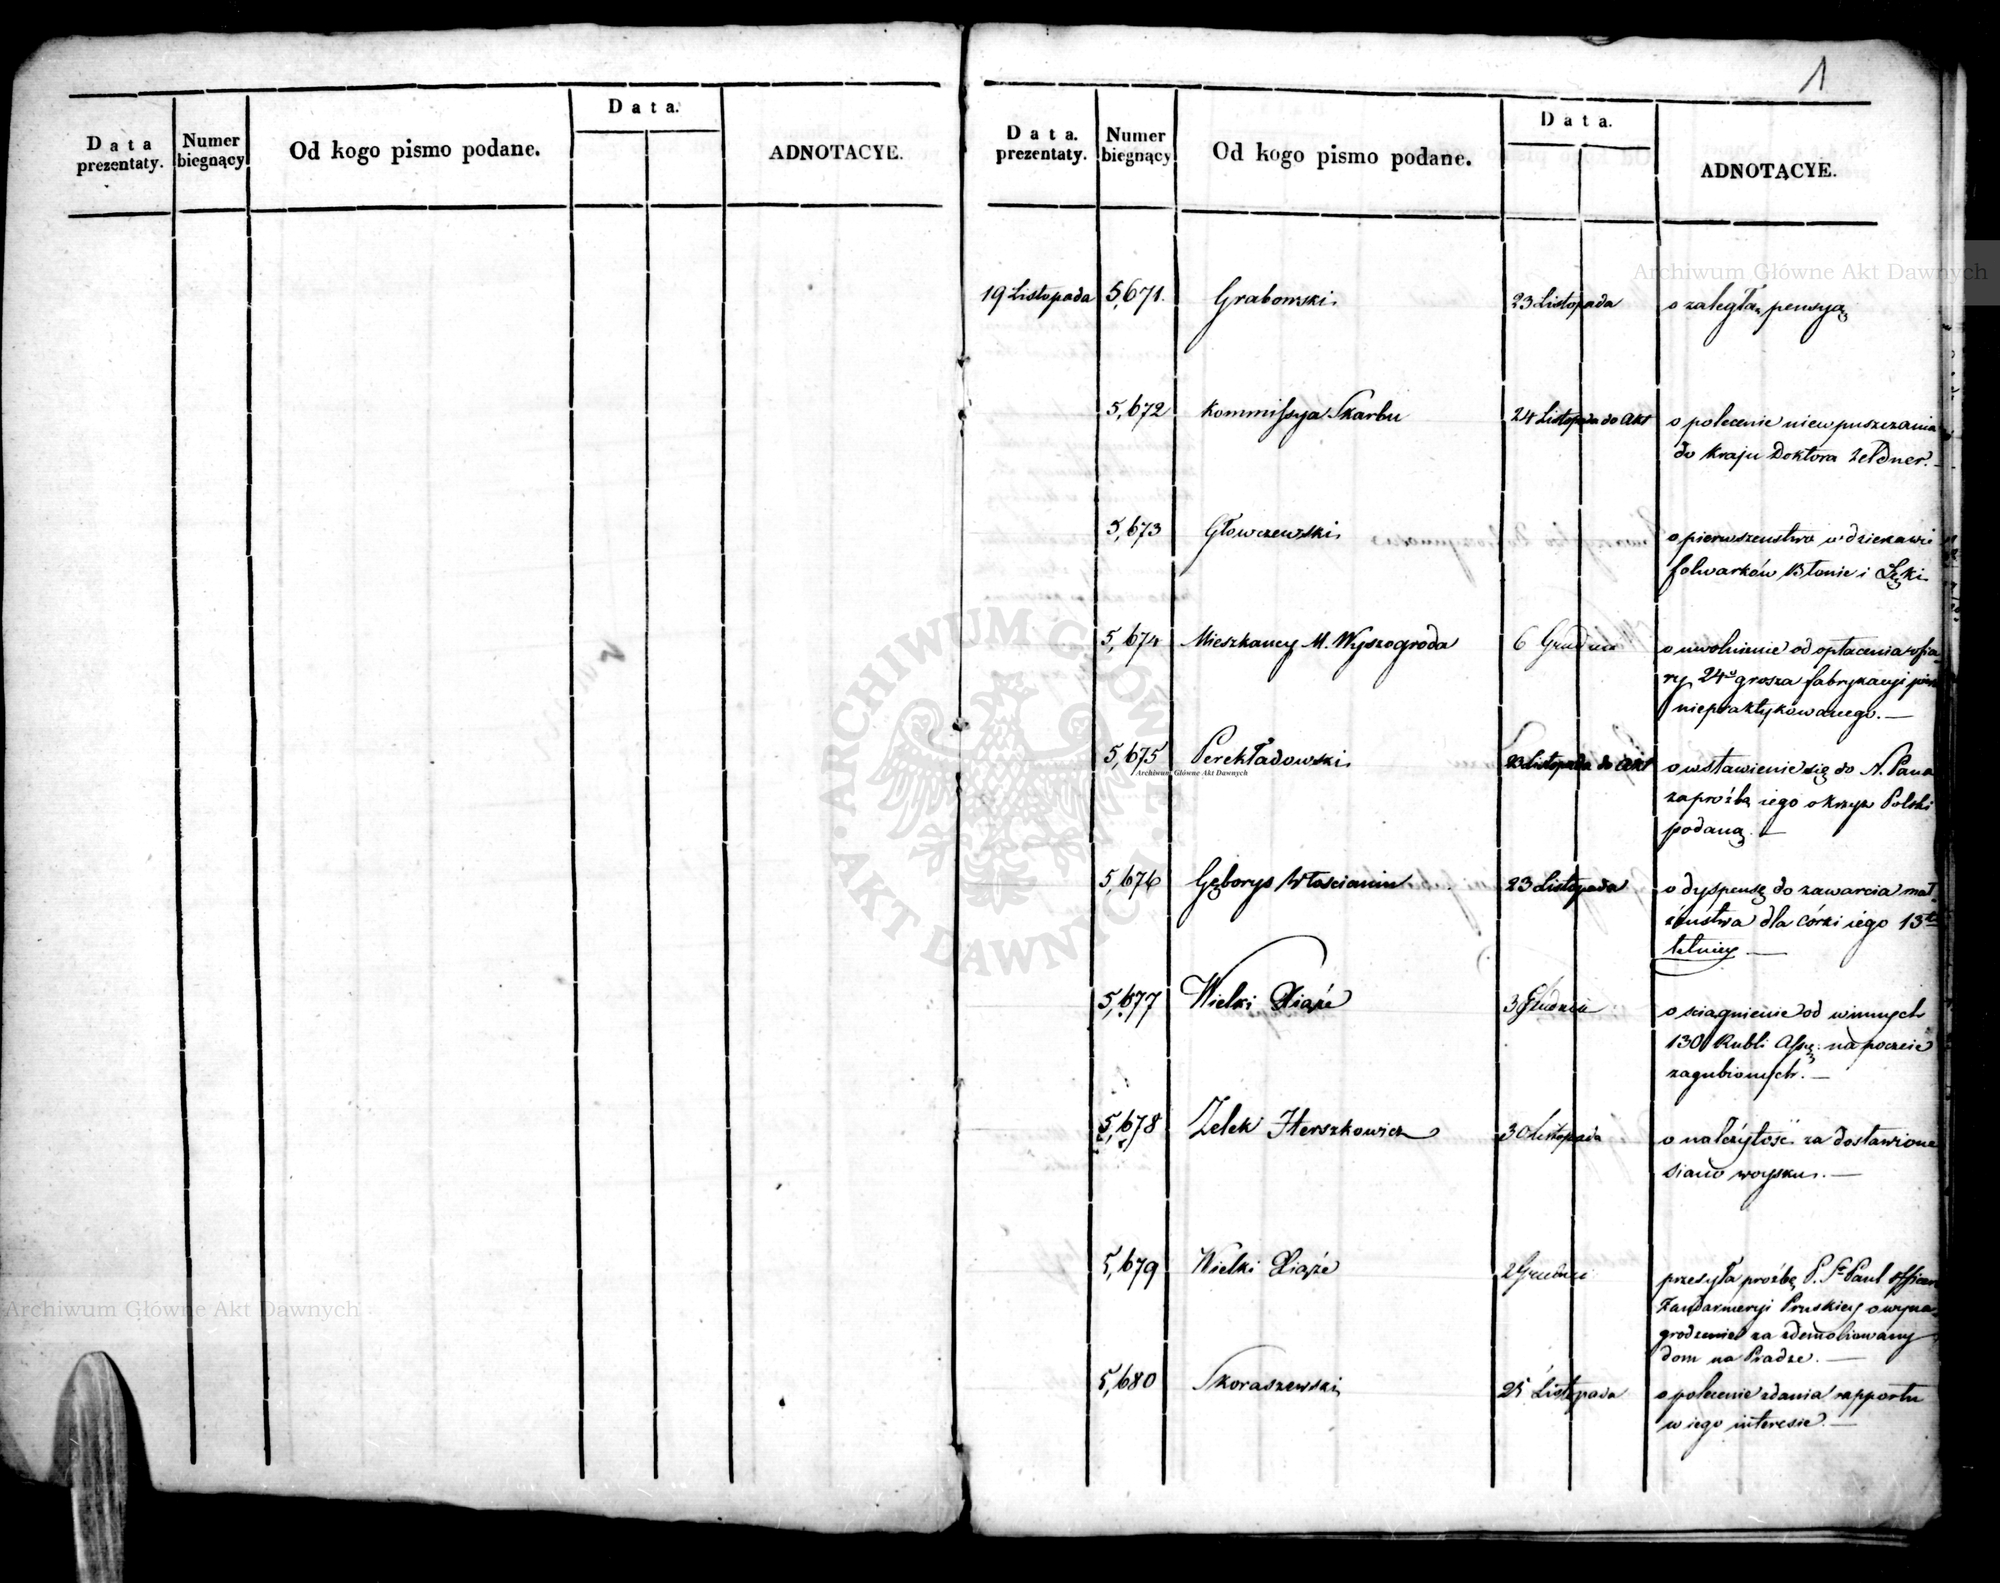 1
Data prezentaty.
Numer biegnący
Od kogo pismo podane.
Data.
ADNOTACYE.
Data. prezentaty.
Numer biegnący
Od kogo pismo podane.
Data.
ADNOTACYE.
19 Listopada 5,671. Grabowski 23 Listopada o zaległą pensyą
5,672 Kommissya Skarbu 24 Listopada do Akt o polecenie niewpuszczania
do kraju Doktora Zeldner. —
5,673 Głowczewski o pierwszeństwo w dzierżawie
folwarków Błonie i Łęki
5,674 Mieszkańcy M. Wyszogroda 6 Grudnia o uwolnienie od opłacenia ofia-
ry 24º grosza fabrykacyi
niepraktykowanego. —
5,675 Perekładowski 23 Listopada do Akt o wstawienie się do N. Pana
za proźbą iego o krzyż Polski
podaną. —
5,676 Gęborys Włościanin 23 Listopada o dyspensę do zawarcia mał-
żeństwa dla córki iego 13to
letniey —
5,677 Wielki Xiąże 3 Grudnia o ściągnienie od winnych
130 Rubli Assy: na poczcie
zagubionych. —
5,678 Zelek Herszkowicz 30 Listopada o należytość za dostawione
siano woysku. —
5,679 Wielki Xiąże 2 Grudnia przesyła proźbę P. St Paul officera
Żandarmeryi Pruskiey o wyna-
grodzenie za zdemoliowany
dom na Pradze. —
5,680 Skoraszewski 25 Listopada o polecenie zdania rapportu
w iego interesie. —
Archiwum Główne Akt Dawnych
Archiwum Główne Akt Dawnych
Archiwum Główne Akt Dawnych
ARCHIWUM GŁÓWNE AKT DAWNYCH